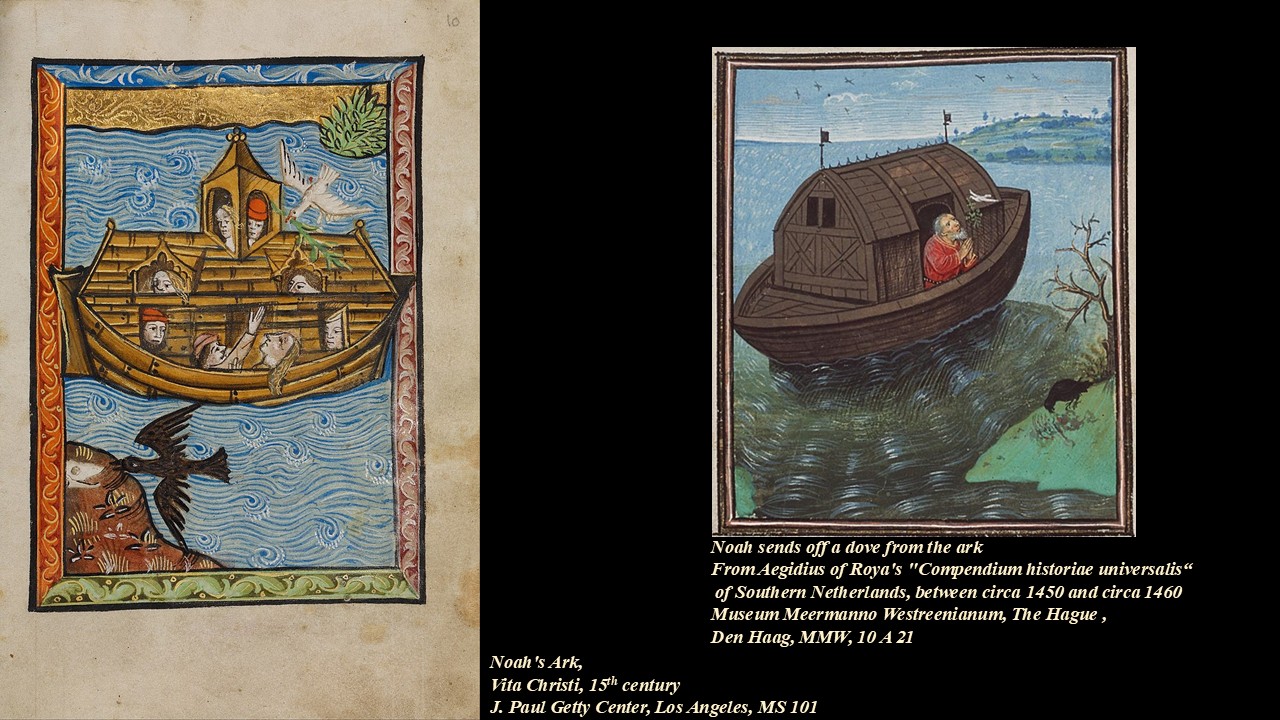 10
Noah sends off a dove from the ark
From Aegidius of Roya's "Compendium historiae universalis“
of Southern Netherlands, between circa 1450 and circa 1460
Museum Meermanno Westreenianum, The Hague ,
Den Haag, MMW, 10 A 21
Noah's Ark,
Vita Christi, 15th century
J. Paul Getty Center, Los Angeles, MS 101